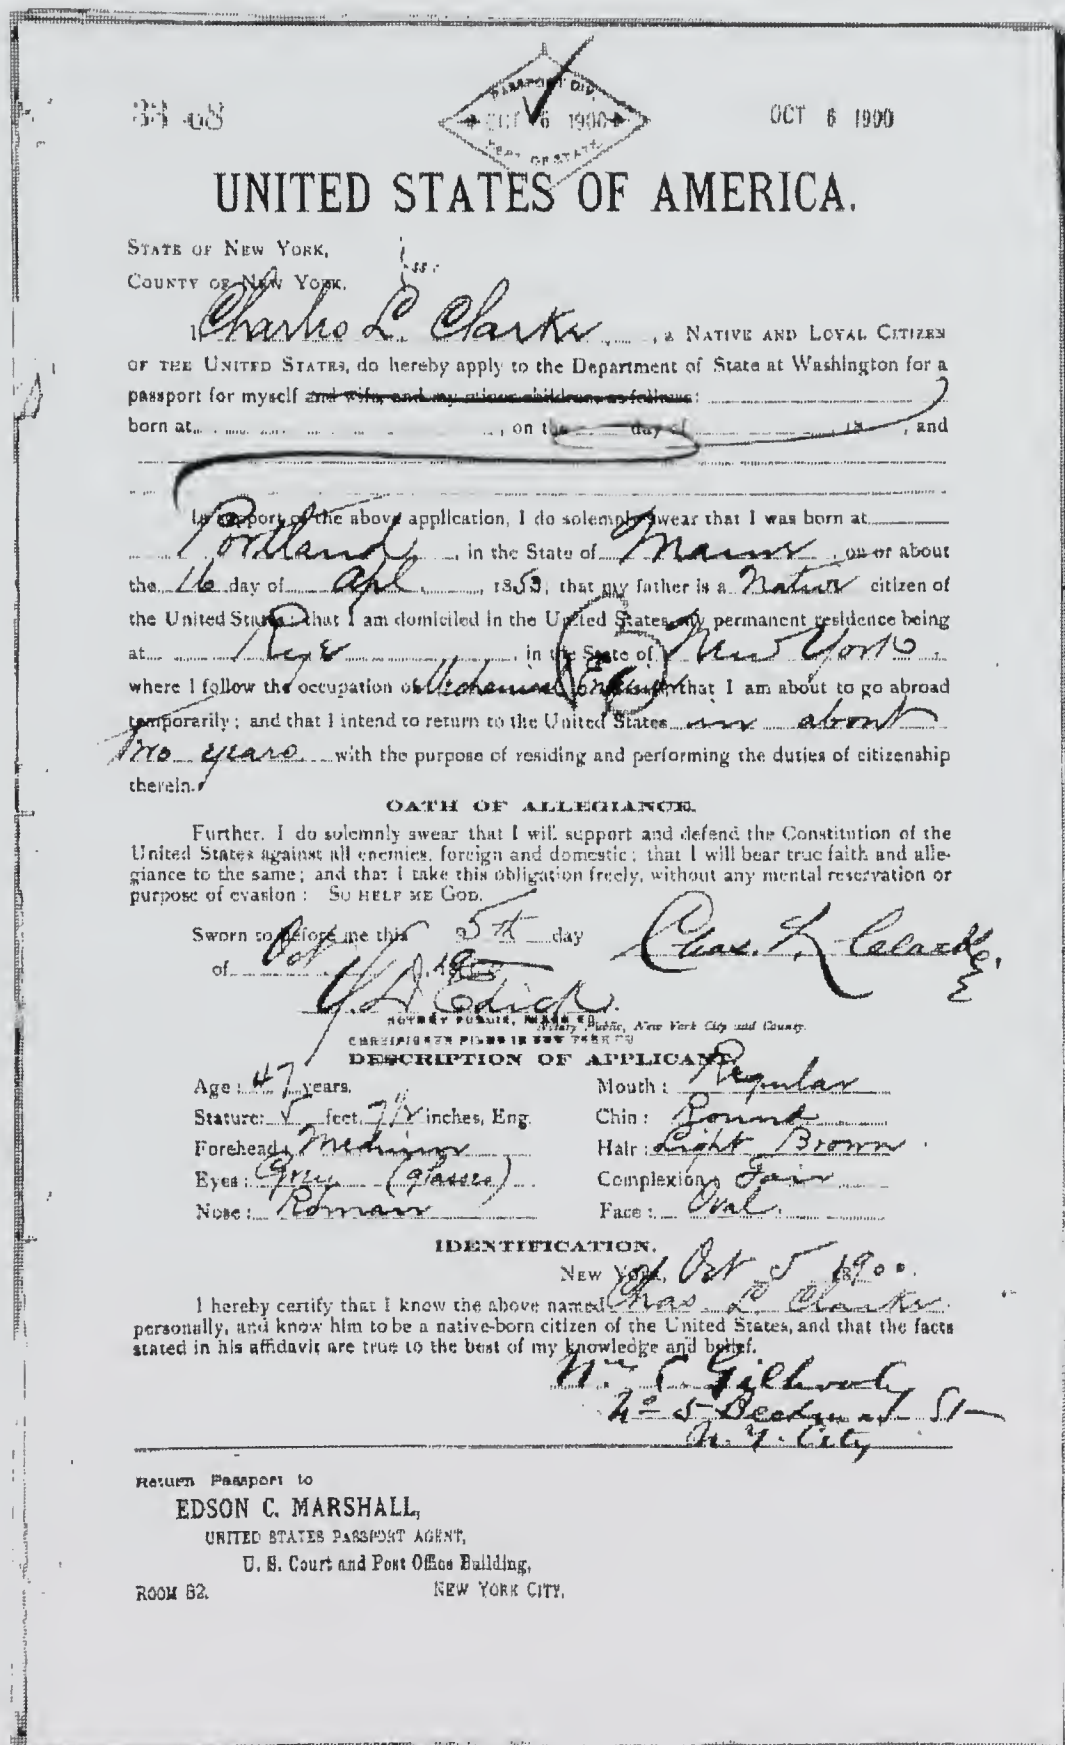 PASSPORT DIV.
OCT 6 1900
DEPT. OF STATE.
OCT 6 1900
UNITED STATES OF AMERICA.
STATE OF NEW YORK,
COUNTY OF NEW YORK.
ss:
I Charles L. Clarke, a NATIVE AND LOYAL CITIZEN
OF THE UNITED STATES, do hereby apply to the Department of State at Washington for a
passport for myself and wife, and my minor children, as follows:
born at , on the day of , 18 , and
In support of the above application, I do solemnly swear that I was born at
Portland, in the State of Maine, on or about
the 16 day of Apl, 1853; that my father is a Native citizen of
the United States; that I am domiciled in the United States, my permanent residence being
at Rye, in the State of New York,
where I follow the occupation of Mechanical Engineer; that I am about to go abroad
temporarily; and that I intend to return to the United States in about
two years with the purpose of residing and performing the duties of citizenship
therein.
OATH OF ALLEGIANCE.
Further, I do solemnly swear that I will support and defend the Constitution of the
United States against all enemies, foreign and domestic; that I will bear true faith and alle-
giance to the same; and that I take this obligation freely, without any mental reservation or
purpose of evasion: SO HELP ME GOD.
Sworn to before me this 5th day
of Oct 1900 Chas. L. Clarke
Edick
NOTARY PUBLIC, KINGS CO. Notary Public, New York City and County.
CERTIFICATE FILED IN NEW YORK CO
DESCRIPTION OF APPLICANT.
Age: 47 years. Mouth: Regular
Stature: 5 feet, 7½ inches, Eng. Chin: Round
Forehead: Medium Hair: Light Brown
Eyes: Grey (glasses) Complexion: Fair
Nose: Roman Face: Oval
IDENTIFICATION.
NEW YORK, Oct 5 1900.
I hereby certify that I know the above named Chas. L. Clarke
personally, and know him to be a native-born citizen of the United States, and that the facts
stated in his affidavit are true to the best of my knowledge and belief.
Wm C. Gilhooly
No 5 Beekman St
N. Y. City
Return Passport to
EDSON C. MARSHALL,
UNITED STATES PASSPORT AGENT,
U. S. Court and Post Office Building,
ROOM 82. NEW YORK CITY.